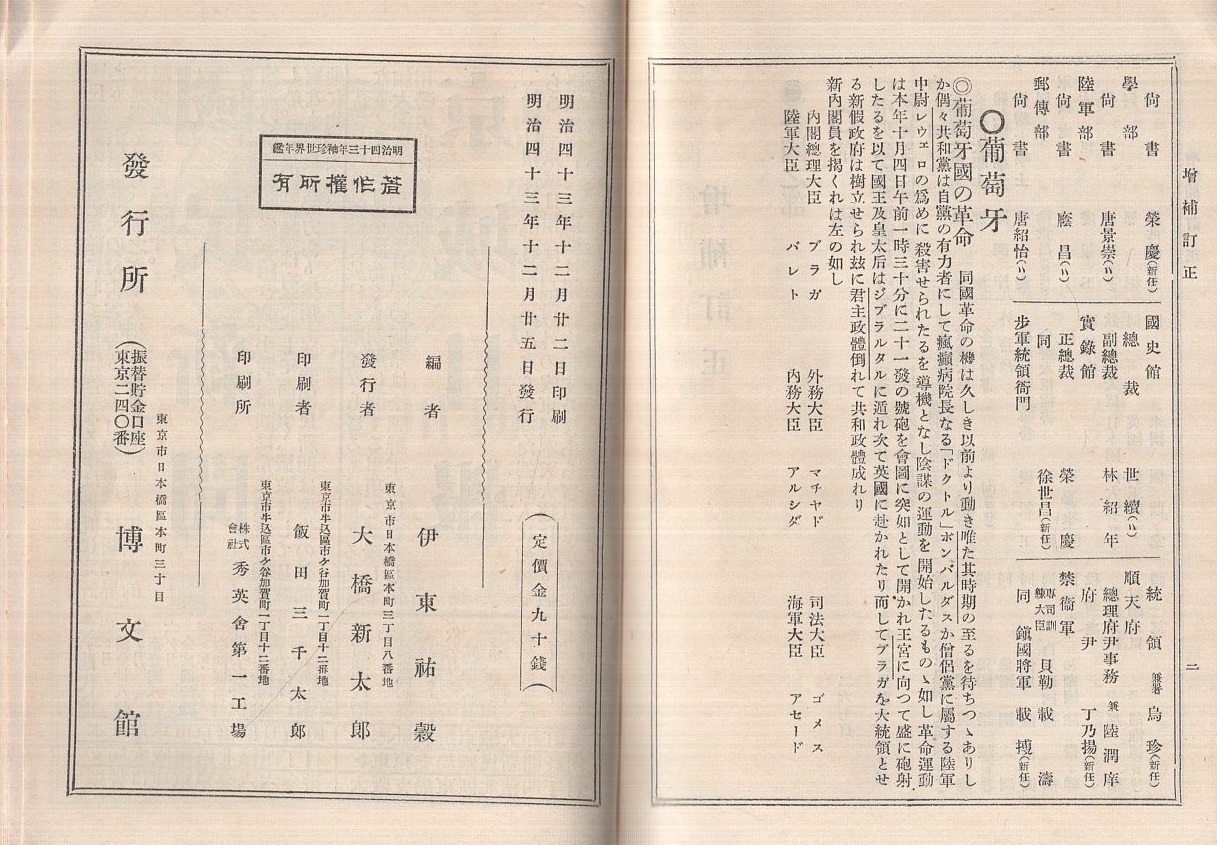 增補訂正
二
學部尙書 榮慶(新任)
陸軍部尙書 唐景崇(〃)
郵傳部尙書 廕昌(〃)
尙書 唐紹怡(〃)
國史館總裁 世續(〃)
副總裁 林紹年
實錄館正總裁 榮慶
同 徐世昌(新任)
步軍統領衙門
統領 兼署 烏珍(新任)
順天府
總理府尹事務 兼 陸潤庠
府尹 丁乃揚(新任)
禁衞軍
專司訓練大臣 貝勒 載濤
同 鎭國將軍 載搏(新任)
〇葡萄牙
◎葡萄牙國の革命 同國革命の機は久しき以前より動き唯た其時期の至るを待ちつヽありし
か偶々共和黨は自黨の有力者にして瘋癲病院長なる「ドクトル」ボンバルダスか僧侶黨に屬する陸軍
中尉レウェロの爲めに殺害せられたるを導機となし陰謀の運動を開始したるものヽ如し革命運動
は本年十月四日午前一時三十分に二十一發の號砲を會圖に突如として開かれ王宮に向つて盛に砲射
したるを以て國王及皇太后はジブラルタルに遁れ次て英國に赴かれたり而してブラガを大統領とせ
る新假政府は樹立せられ玆に君主政體倒れて共和政體成れり
新內閣員を揭くれは左の如し
內閣總理大臣 ブラガ 外務大臣 マチヤド 司法大臣 ゴメス
陸軍大臣 バレト 內務大臣 アルシダ 海軍大臣 アセード
明治四十三年十二月廿二日印刷
明治四十三年十二月廿五日發行
(定價金九十錢)
明治四十三年袖珍世界年鑑
著作權所有
編者 伊東祐穀
東京市日本橋區本町三丁目八番地
發行者 大橋新太郎
東京市牛込區市ケ谷加賀町一丁目十二番地
印刷者 飯田三千太郎
東京市牛込區市ケ谷加賀町一丁目十二番地
印刷所 株式會社 秀英舍第一工場
東京市日本橋區本町三丁目
發行所 (振替貯金口座東京二四〇番) 博文館